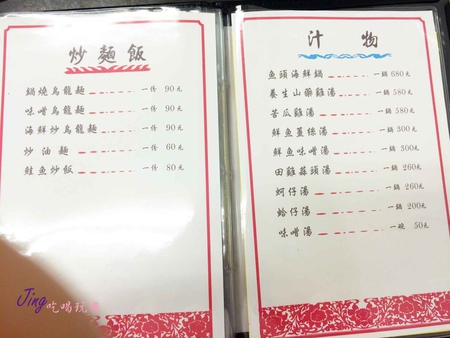 炒麵飯
鍋燒烏龍麵 一份 90元
味噌烏龍麵 一份 90元
海鮮炒烏龍麵 一份 90元
炒油麵 一份 60元
鮭魚炒飯 一份 80元
Jing吃喝玩
汁物
魚頭海鮮鍋 一鍋 680元
養生山藥雞湯 一鍋 580元
苦瓜雞湯 一鍋 580元
鮮魚薑絲湯 一鍋 300元
鮮魚味噌湯 一鍋 300元
田雞蒜頭湯 一鍋 260元
蚵仔湯 一鍋 260元
蛤仔湯 一鍋 200元
味噌湯 一碗 50元